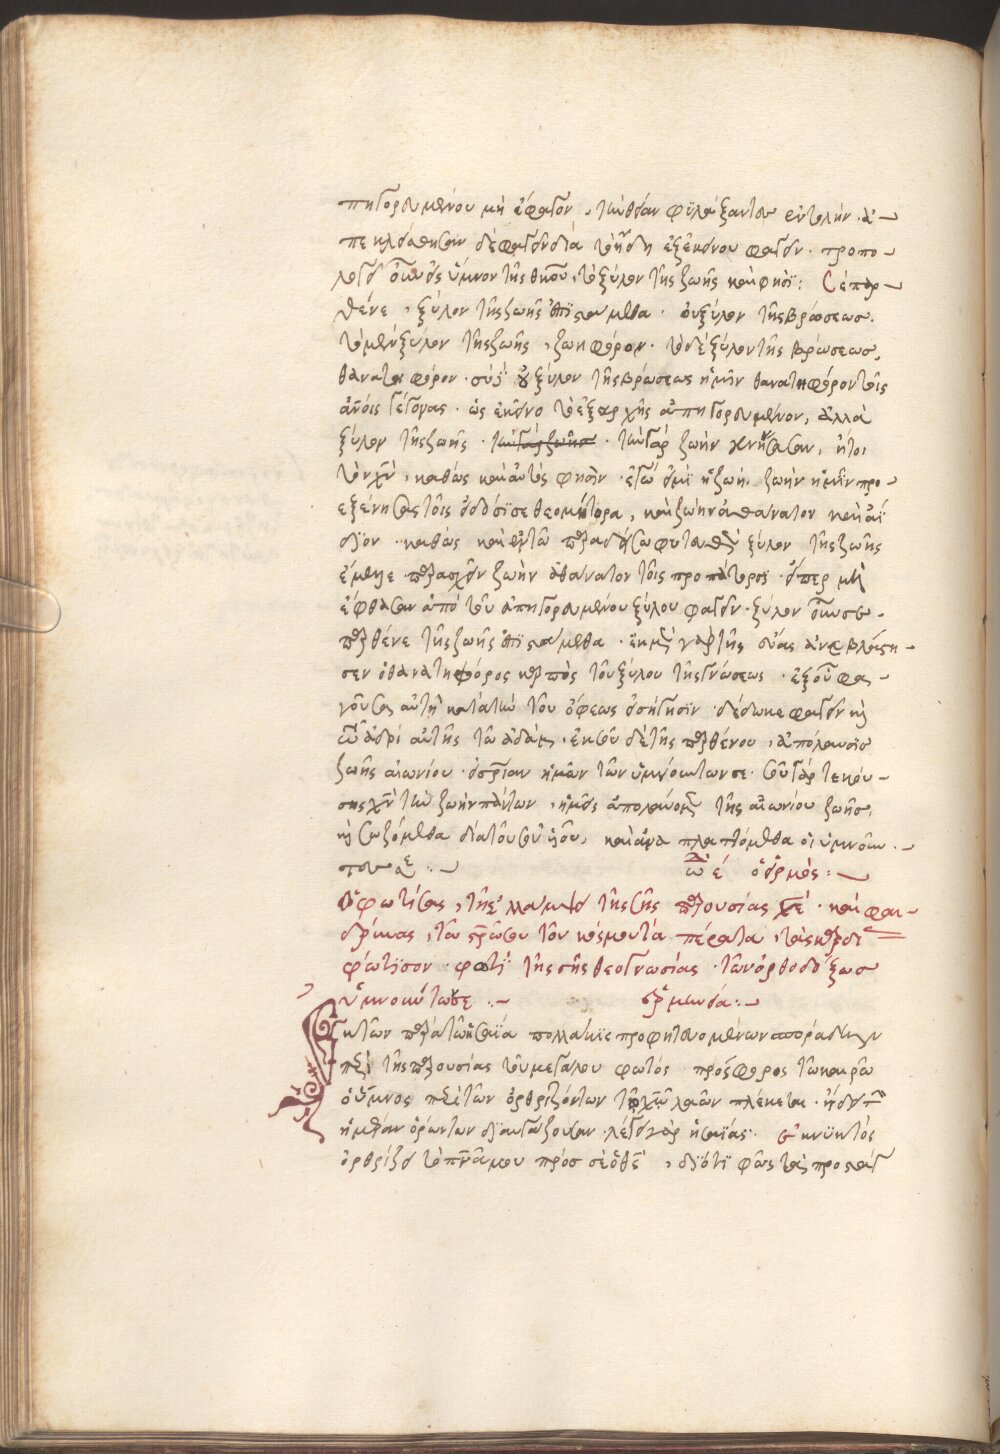 πηγορευμένου μὴ ἐφαγον, τὴν θείαν φυλάξαντες ἐντολήν. ἀ-
πε κλείσθησαν δὲ φαγεῖν διὰ τὸ ἤδη ἐξ ἐκείνου φαγεῖν. προπο-
λογεῖ οὖν ὡς ὕμνον τῆς θκου, τὸ ξύλον τῆς ζωῆς καὶ φησί: Σὲ παρ-
θένε, ξύλον τῆς ζωῆς ἐπιστάμεθα. οὐ ξύλον τῆς βρώσεως.
τὸ μὲν ξύλον τῆς ζωῆς, ζωηφόρον. τὸ δὲ ξύλον τῆς βρώσεως,
θανατηφόρον. σὺ οὐ ξύλον τῆς βρώσεως ἡμῖν θανατηφόρον τοῖς
ἀνοις γέγονας. ὡς ἐκεῖνο τὸ ἐξ ἀρχῆς ἀπηγορευμένον, ἀλλὰ
ξύλον τῆς ζωῆς. τὴν γὰρ ζωὴν γεννήσασαν, ἤτοι
τὸν χν, καθὼς καὶ αὐτός φησιν. ἐγώ εἰμι ἡ ζωή. ζωὴν ἡμῖν προ-
εξένησας τοῖς εὐσεθεομήτορα, καὶ ζωὴν ἀθάνατον καὶ ἀΐ
διον. καθὼς καὶ ἐν τῶ παραδείσω φυτευθὲν ξύλον τῆς ζωῆς
ἔμελλε παρασχεῖν ζωὴν ἀθάνατον τοῖς προπάτορσι. ὅπερ μὴ
ἔφθασαν ἀπὸ τοῦ ἀπηγορευμένου ξύλου φαγεῖν. ξύλον οὖν σε
παρθένε τῆς ζωῆς ἐπιστάμεθα. ἐκ μὲν γὰρ τῆς εὔας ἀνεβλάστη-
σεν ὁ θανατηφόρος καρπὸς τοῦ ξύλου τῆς γνώσεως. ἐξ οὗ φα-
γοῦσα αὐτὴ κατὰ τὴν τοῦ ὄφεως εἰσήγησιν. δέδωκε φαγεῖν κ
τῶ ἀνδρὶ αὐτῆς τῶ ἀδάμ. ἐκ σοῦ δὲ τῆς παρθένου, ἀπόλαυσις
ζωῆς αἰωνίου. σωτηρίαν ἡμῶν τῶν ὑμνούντων σε. σοῦ γὰρ τεκού-
σης χν τὴν ζωὴν πάντων, ἡμεῖς ἀπολαύομεν τῆς αἰωνίου ζωῆς,
κ σωζόμεθα διὰ τοῦ σοῦ υἱοῦ, καὶ ἀναπλαττόμεθα οἱ ὑμνοῦν-
τές σε. ὠδὴ ε ὁ εἱρμός:
Ὁ φωτίσας, τῆς ἐλλάμψει τῆς σῆς παρουσίας χε. καὶ φαι-
δρύνας, τῶ σταυρῶ σου τοῦ κόσμου τὰ πέρατα, τὰς καρδίας
φώτισον. φωτὶ τῆς σῆς θεογνωσίας. τῶν ὀρθοδόξως
ὑμνούντων σε. ἑρμηνεία:
Ἐκ τῶν παρὰ τῶ ἡσαΐα πολλάκις προφητευομένων σποράδην
περὶ τῆς παρουσίας τοῦ μεγάλου φωτός. προσφόρως τῶ καιρῶ
ὁ ὕμνος περὶ τῶν ὀρθριζόντων τῶ χω λαῶν πλέκεται.
ἡμέραν ὁρώντων λέγει γὰρ ἡσαΐας. ἐκ νυκτός
ὀρθρίζει τὸ πνα μου πρὸς σὲ ὁ θς, διότι φῶς τὰ προστάγ